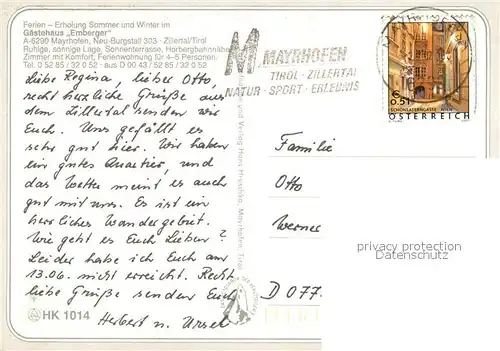 Ferien – Erholung Sommer und Winter im
Gästehaus „Emberger“
A-6290 Mayrhofen, Neu-Burgstall 303 - Zillertal/Tirol
Ruhige, sonnige Lage, Sonnenterrasse, Horbergbahnnähe
Zimmer mit Komfort, Ferienwohnung für 4–5 Personen.
Tel. 0 52 85 / 32 0 52 - aus D 00 43 / 52 85 / 32 0 52
Liebe Regina, lieber Otto,
recht herzliche Grüße aus
dem Zillertal senden wir
Euch. Uns gefällt es
sehr gut hier. Wir haben
ein gutes Quartier, und
das Wetter meint es auch
gut mit uns. Es ist ein
herrliches Wandergebiet.
Wie geht es Euch Lieben?
Leider habe ich Euch am
13.06. nicht erreicht. Recht
liebe Grüße senden Euch
Herbert u. Ursel
HK 1014
und Verlag Hans Hruschka, Mayrhofen, Tirol
M MAYRHOFEN
TIROL · ZILLERTAL
NATUR · SPORT · ERLEBNIS
€ 0,51
SCHÖNLATERNGASSE, WIEN
ÖSTERREICH
Familie
Otto
Werner
D 077
privat copyright
Datenschutz